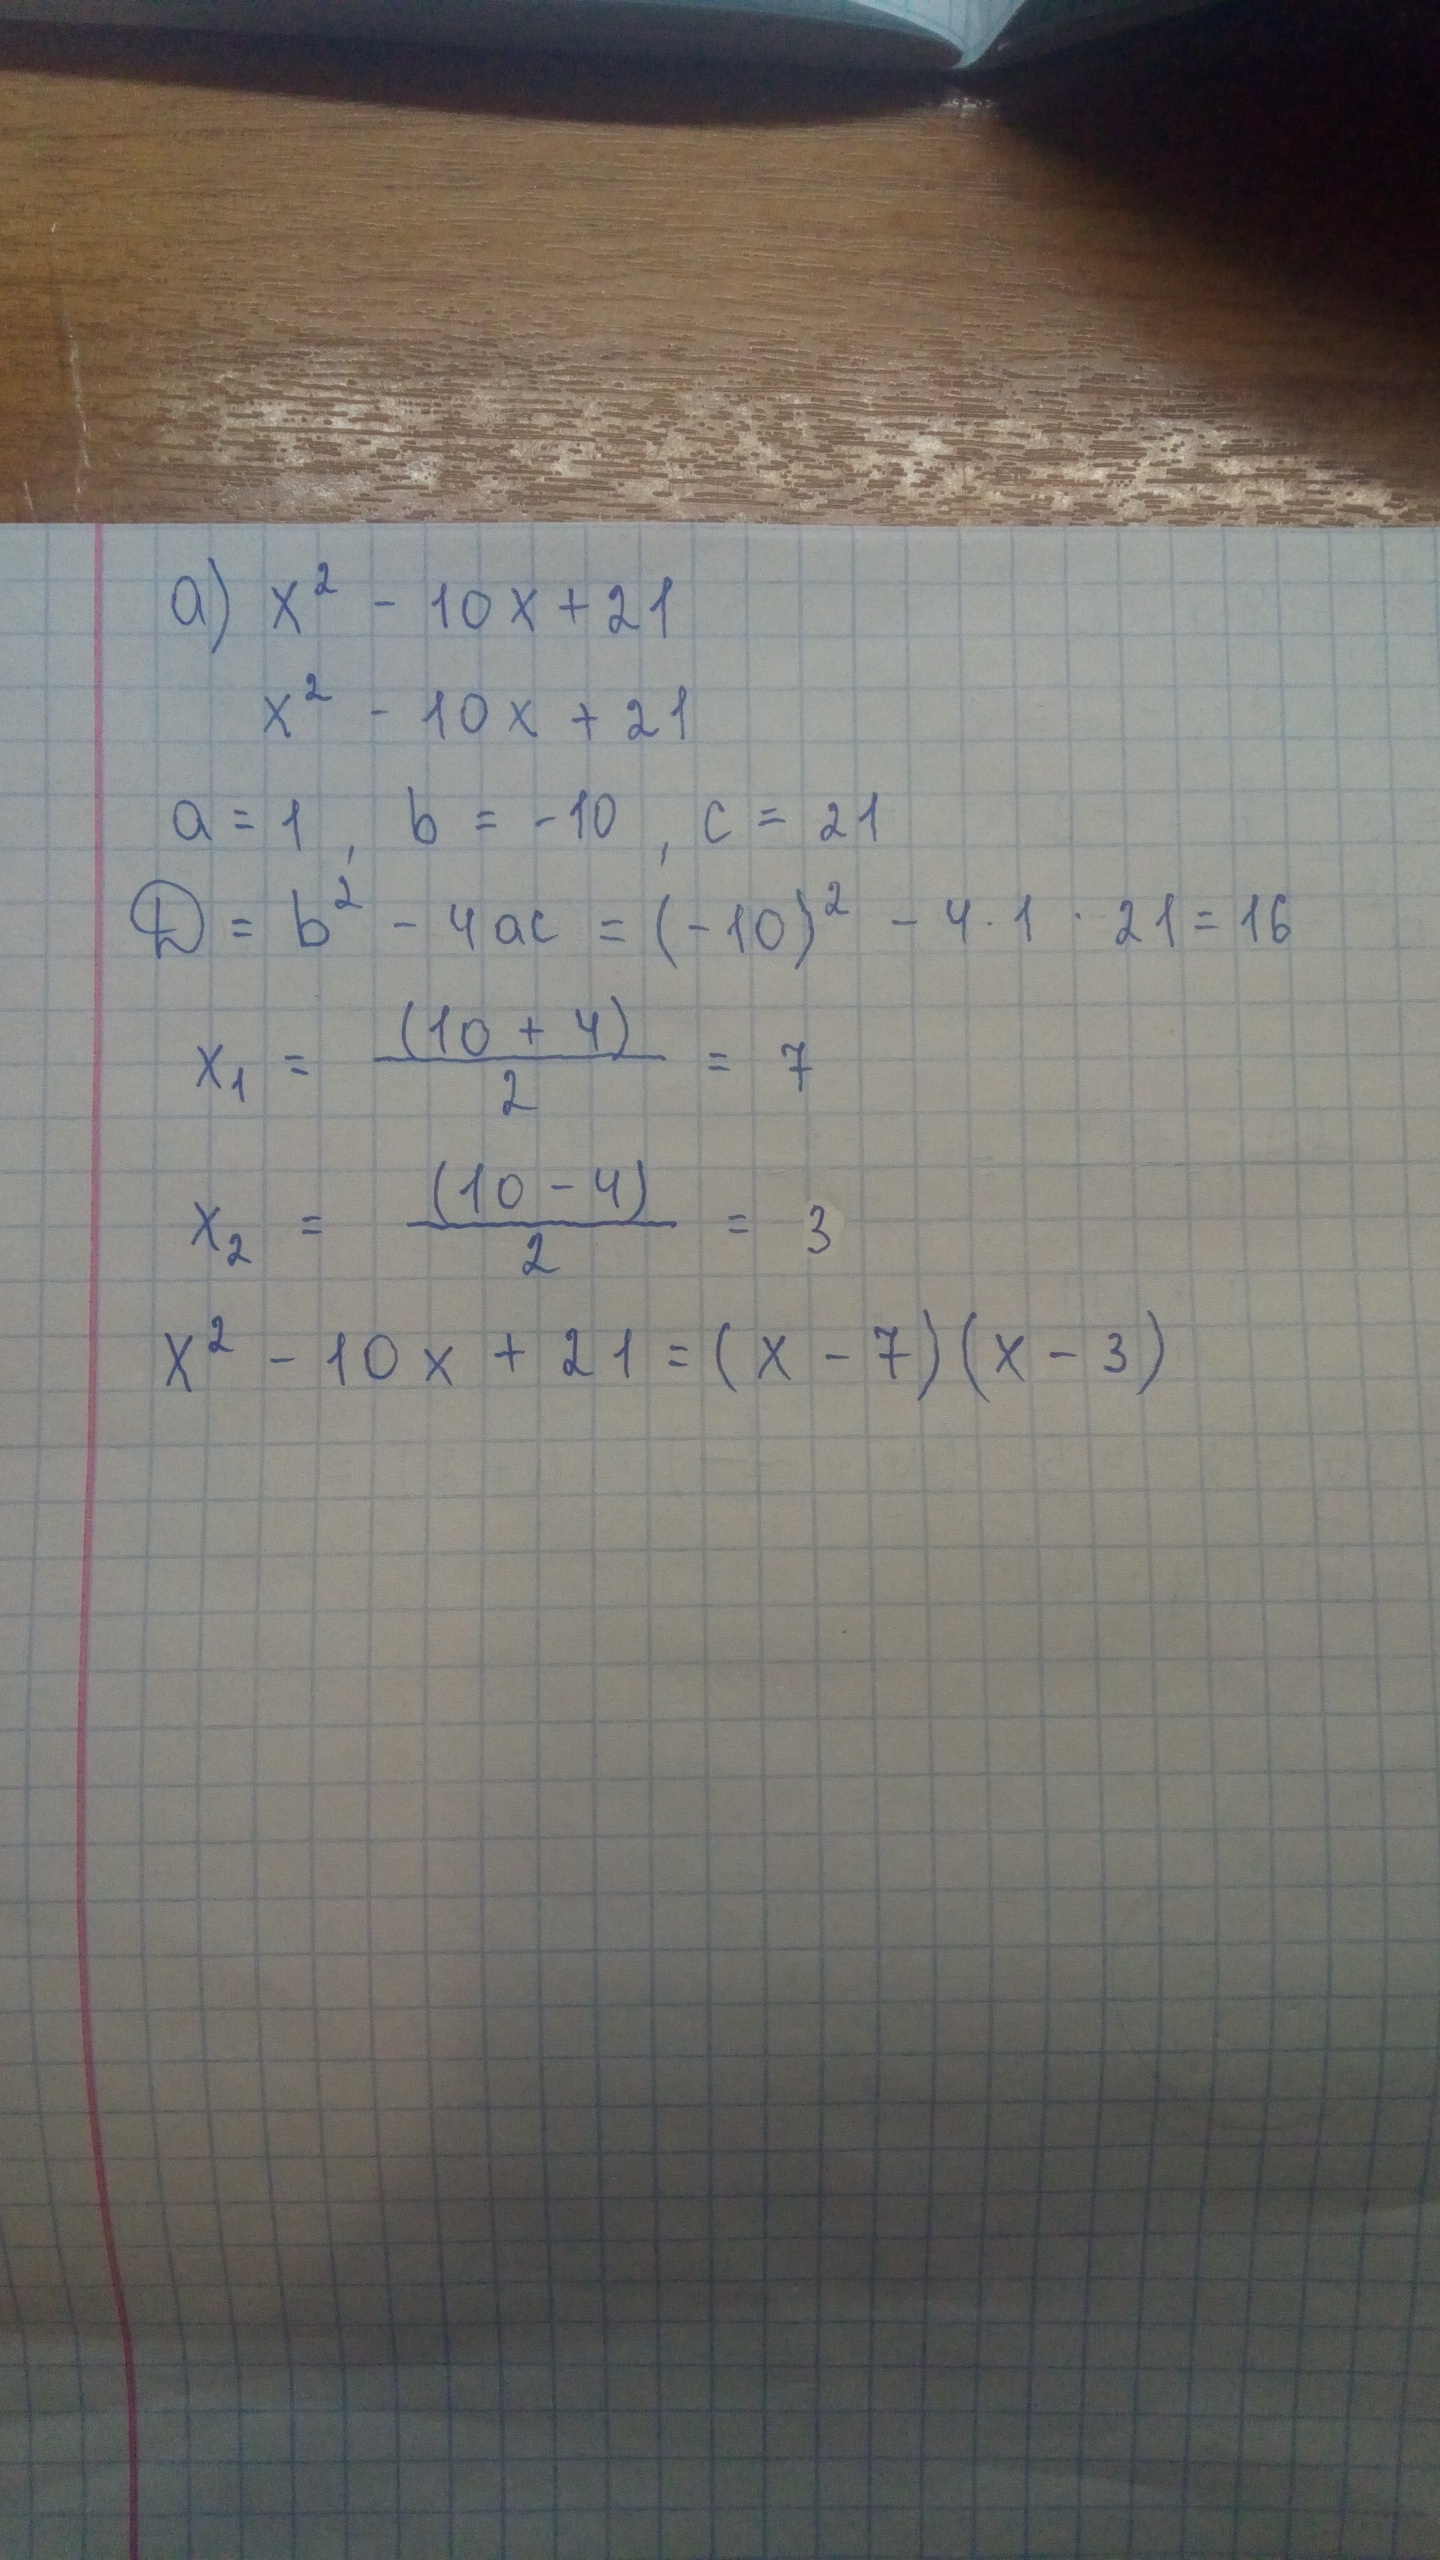 а) x² - 10x + 21
x² - 10x + 21
a = 1, b = -10, c = 21
D = b² - 4ac = (-10)² - 4 · 1 · 21 = 16
x₁ = (10 + 4) / 2 = 7
x₂ = (10 - 4) / 2 = 3
x² - 10x + 21 = (x - 7)(x - 3)